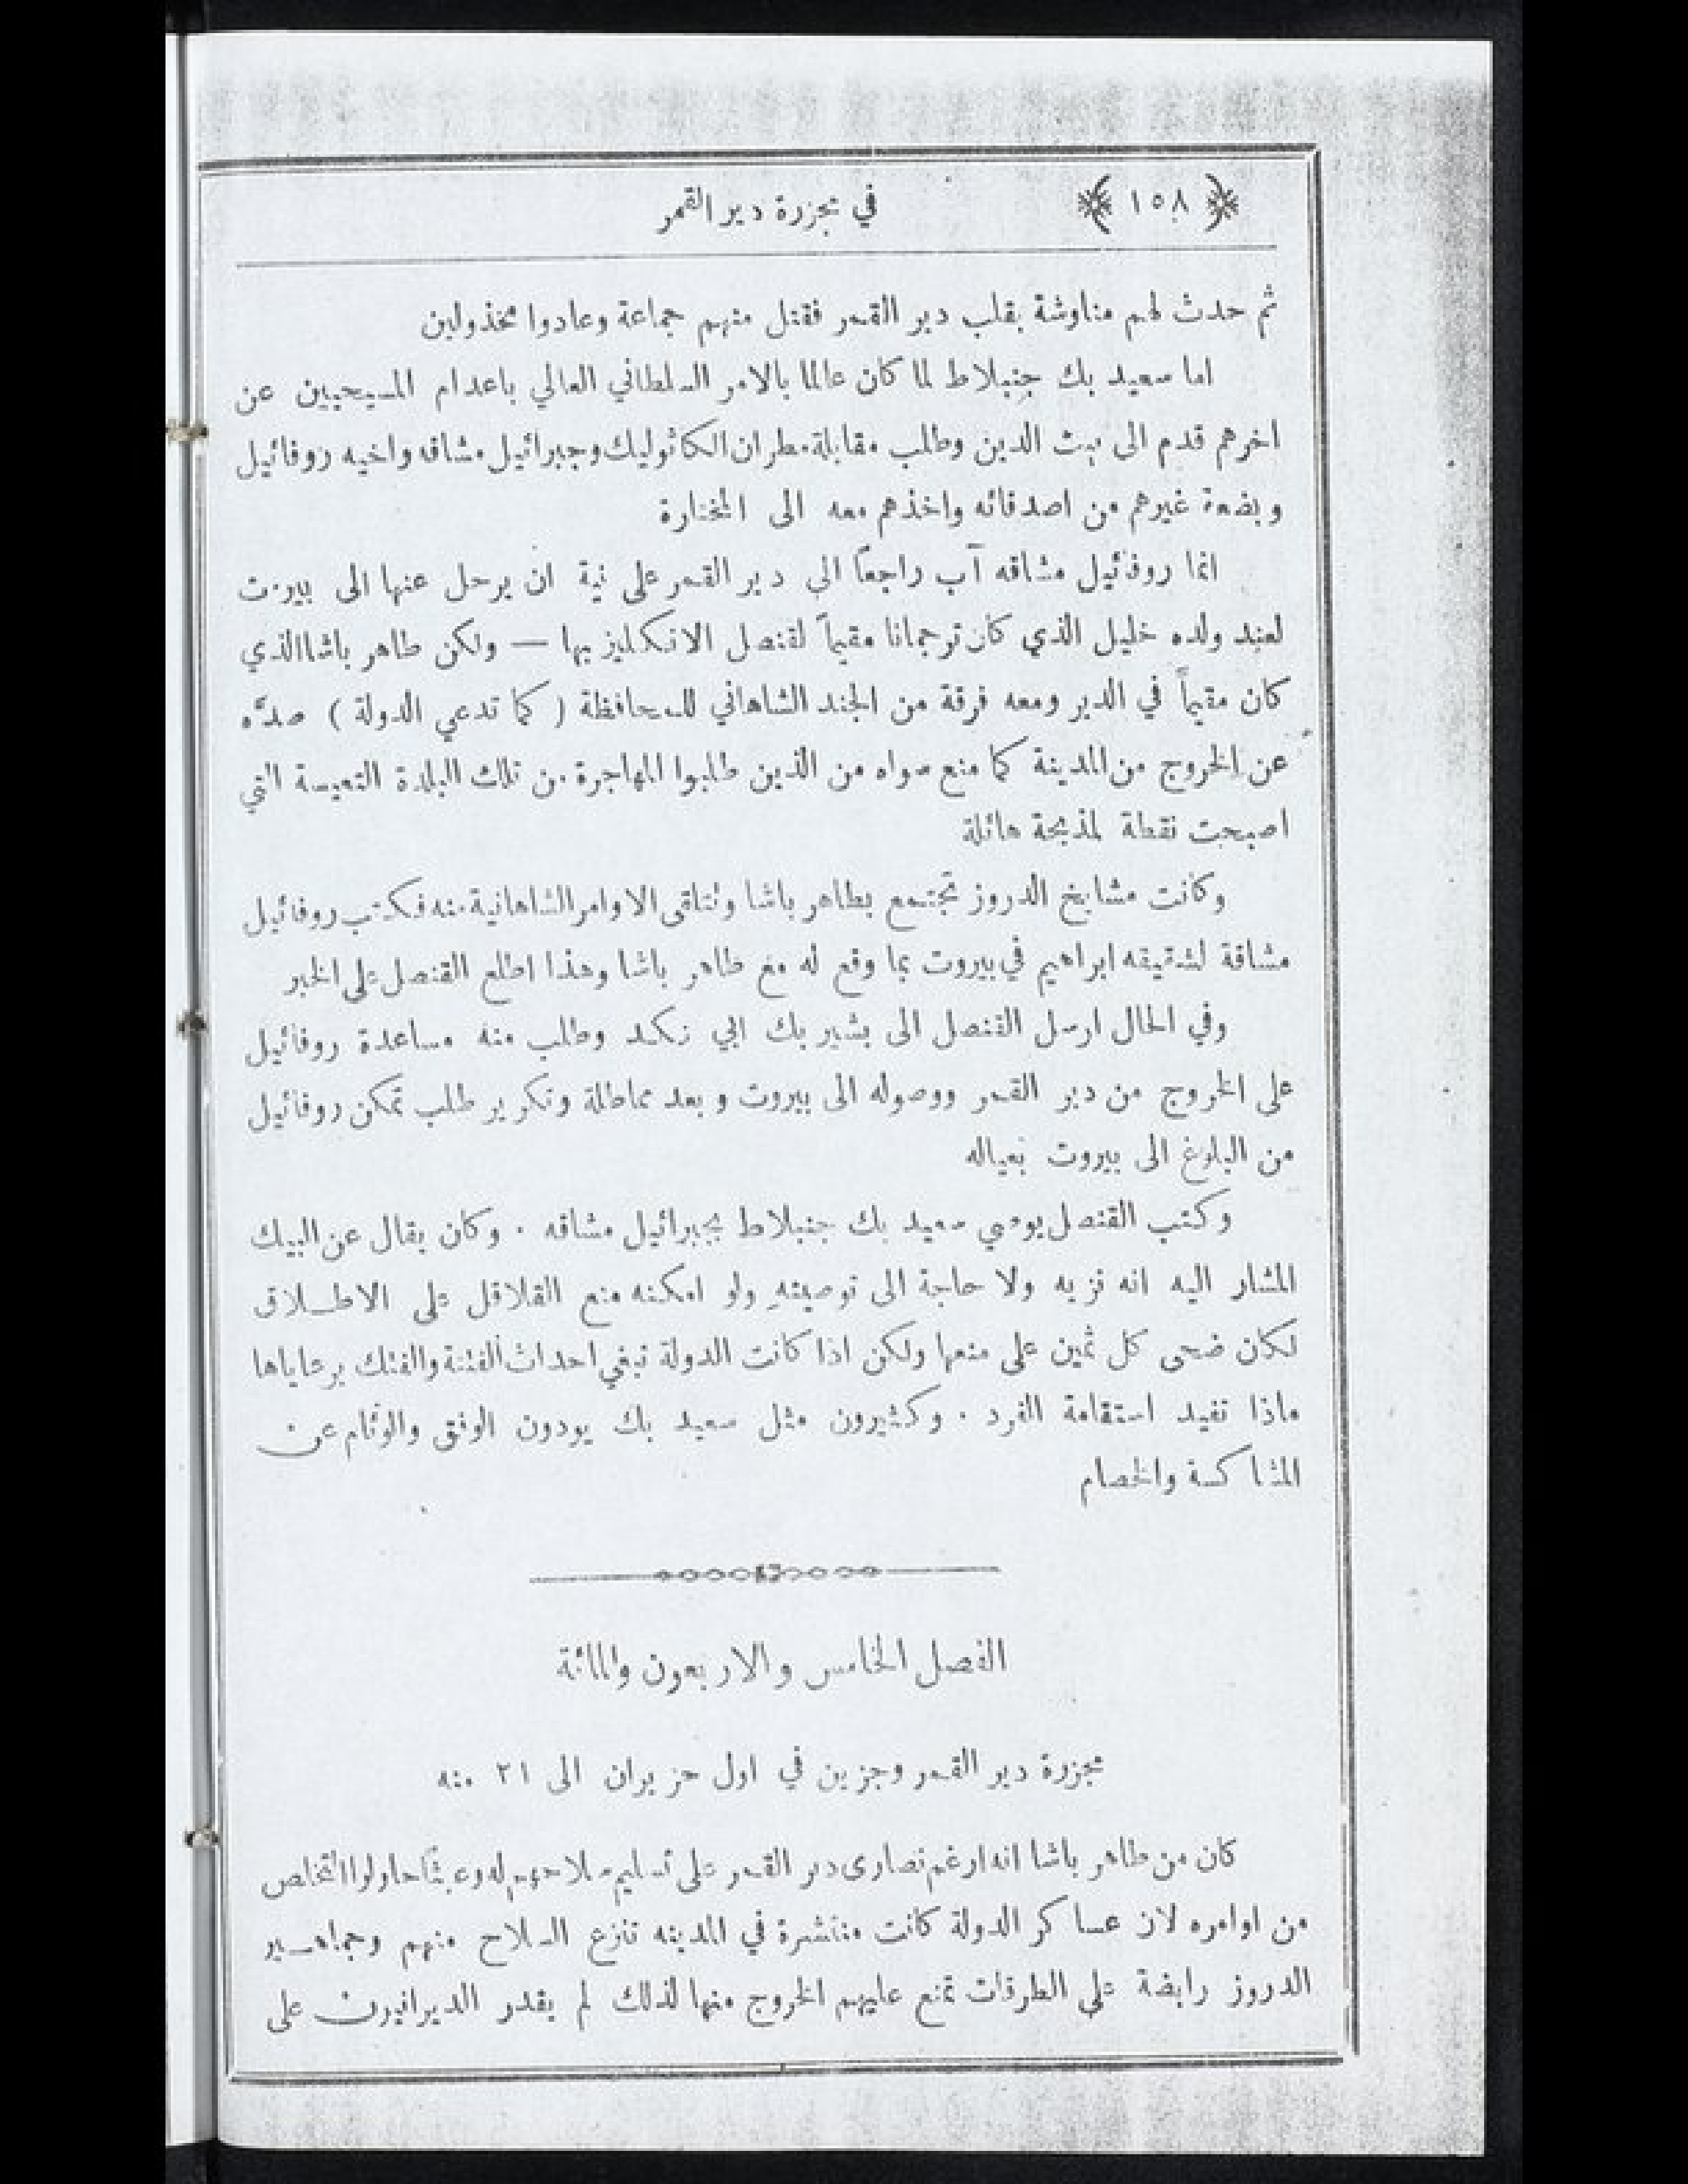 ﴿ ١٥٨ ﴾ في مجزرة دير القمر
ثم حدث لهم مناوشة بقلب دير القمر فقتل منهم جماعة وعادوا مخذولين
اما سعيد بك جنبلاط لما كان عالما بالامر السلطاني العالي باعدام المسيحيين عن
اخرهم قدم الى بيت الدين وطلب مقابلة مطران الكاثوليك وجبرائيل مشاقه واخيه روفائيل
وبضعة غيرهم من اصدقائه واخذهم معه الى المختارة
انما روفائيل مشاقه آب راجعاً الى دير القمر على نية ان يرحل عنها الى بيروت
لعند ولده خليل الذي كان ترجمانا مقيماً لقنصل الانكليز بها — ولكن طاهر باشا الذي
كان مقيماً في الدير ومعه فرقة من الجند الشاهاني للمحافظة ( كما تدعي الدولة ) صدَّه
عن الخروج من المدينة كما منع سواه من الذين طلبوا المهاجرة من تلك البلدة التعيسة التي
اصبحت نقطة لمذبحة هائلة
وكانت مشايخ الدروز تجتمع بطاهر باشا وتتلقى الاوامر الشاهانية منه فكتب روفائيل
مشاقة لشقيقه ابراهيم في بيروت بما وقع له مع طاهر باشا وهذا اطلع القنصل على الخبر
وفي الحال ارسل القنصل الى بشير بك ابي نكد وطلب منه مساعدة روفائيل
على الخروج من دير القمر ووصوله الى بيروت وبعد مماطلة وتكرير طلب تمكن روفائيل
من البلوغ الى بيروت بعياله
وكتب القنصل يوصي سعيد بك جنبلاط بجبرائيل مشاقه . وكان يقال عن البيك
المشار اليه انه نزيه ولا حاجة الى توصيتهِ ولو امكنه منع القلاقل على الاطلاق
لكان ضحى كل ثمين على منعها ولكن اذا كانت الدولة تبغي احداث الفتنة والفتك برعاياها
ماذا تفيد استقامة الفرد . وكثيرون مثل سعيد بك يودون الوفق والوئام عن
المشاكسة والخصام
الفصل الخامس والاربعون والمائة
مجزرة دير القمر وجزين في اول حزيران الى ٢١ منه
كان من طاهر باشا انه ارغم نصارى دير القمر على تسليم سلاحهم له وعبثًا حاولوا التخلص
من اوامره لان عساكر الدولة كانت منتشرة في المدينه تنزع السلاح منهم وجماهير
الدروز رابضة على الطرقات تمنع عليهم الخروج منها لذلك لم يقدر الديرانيون على